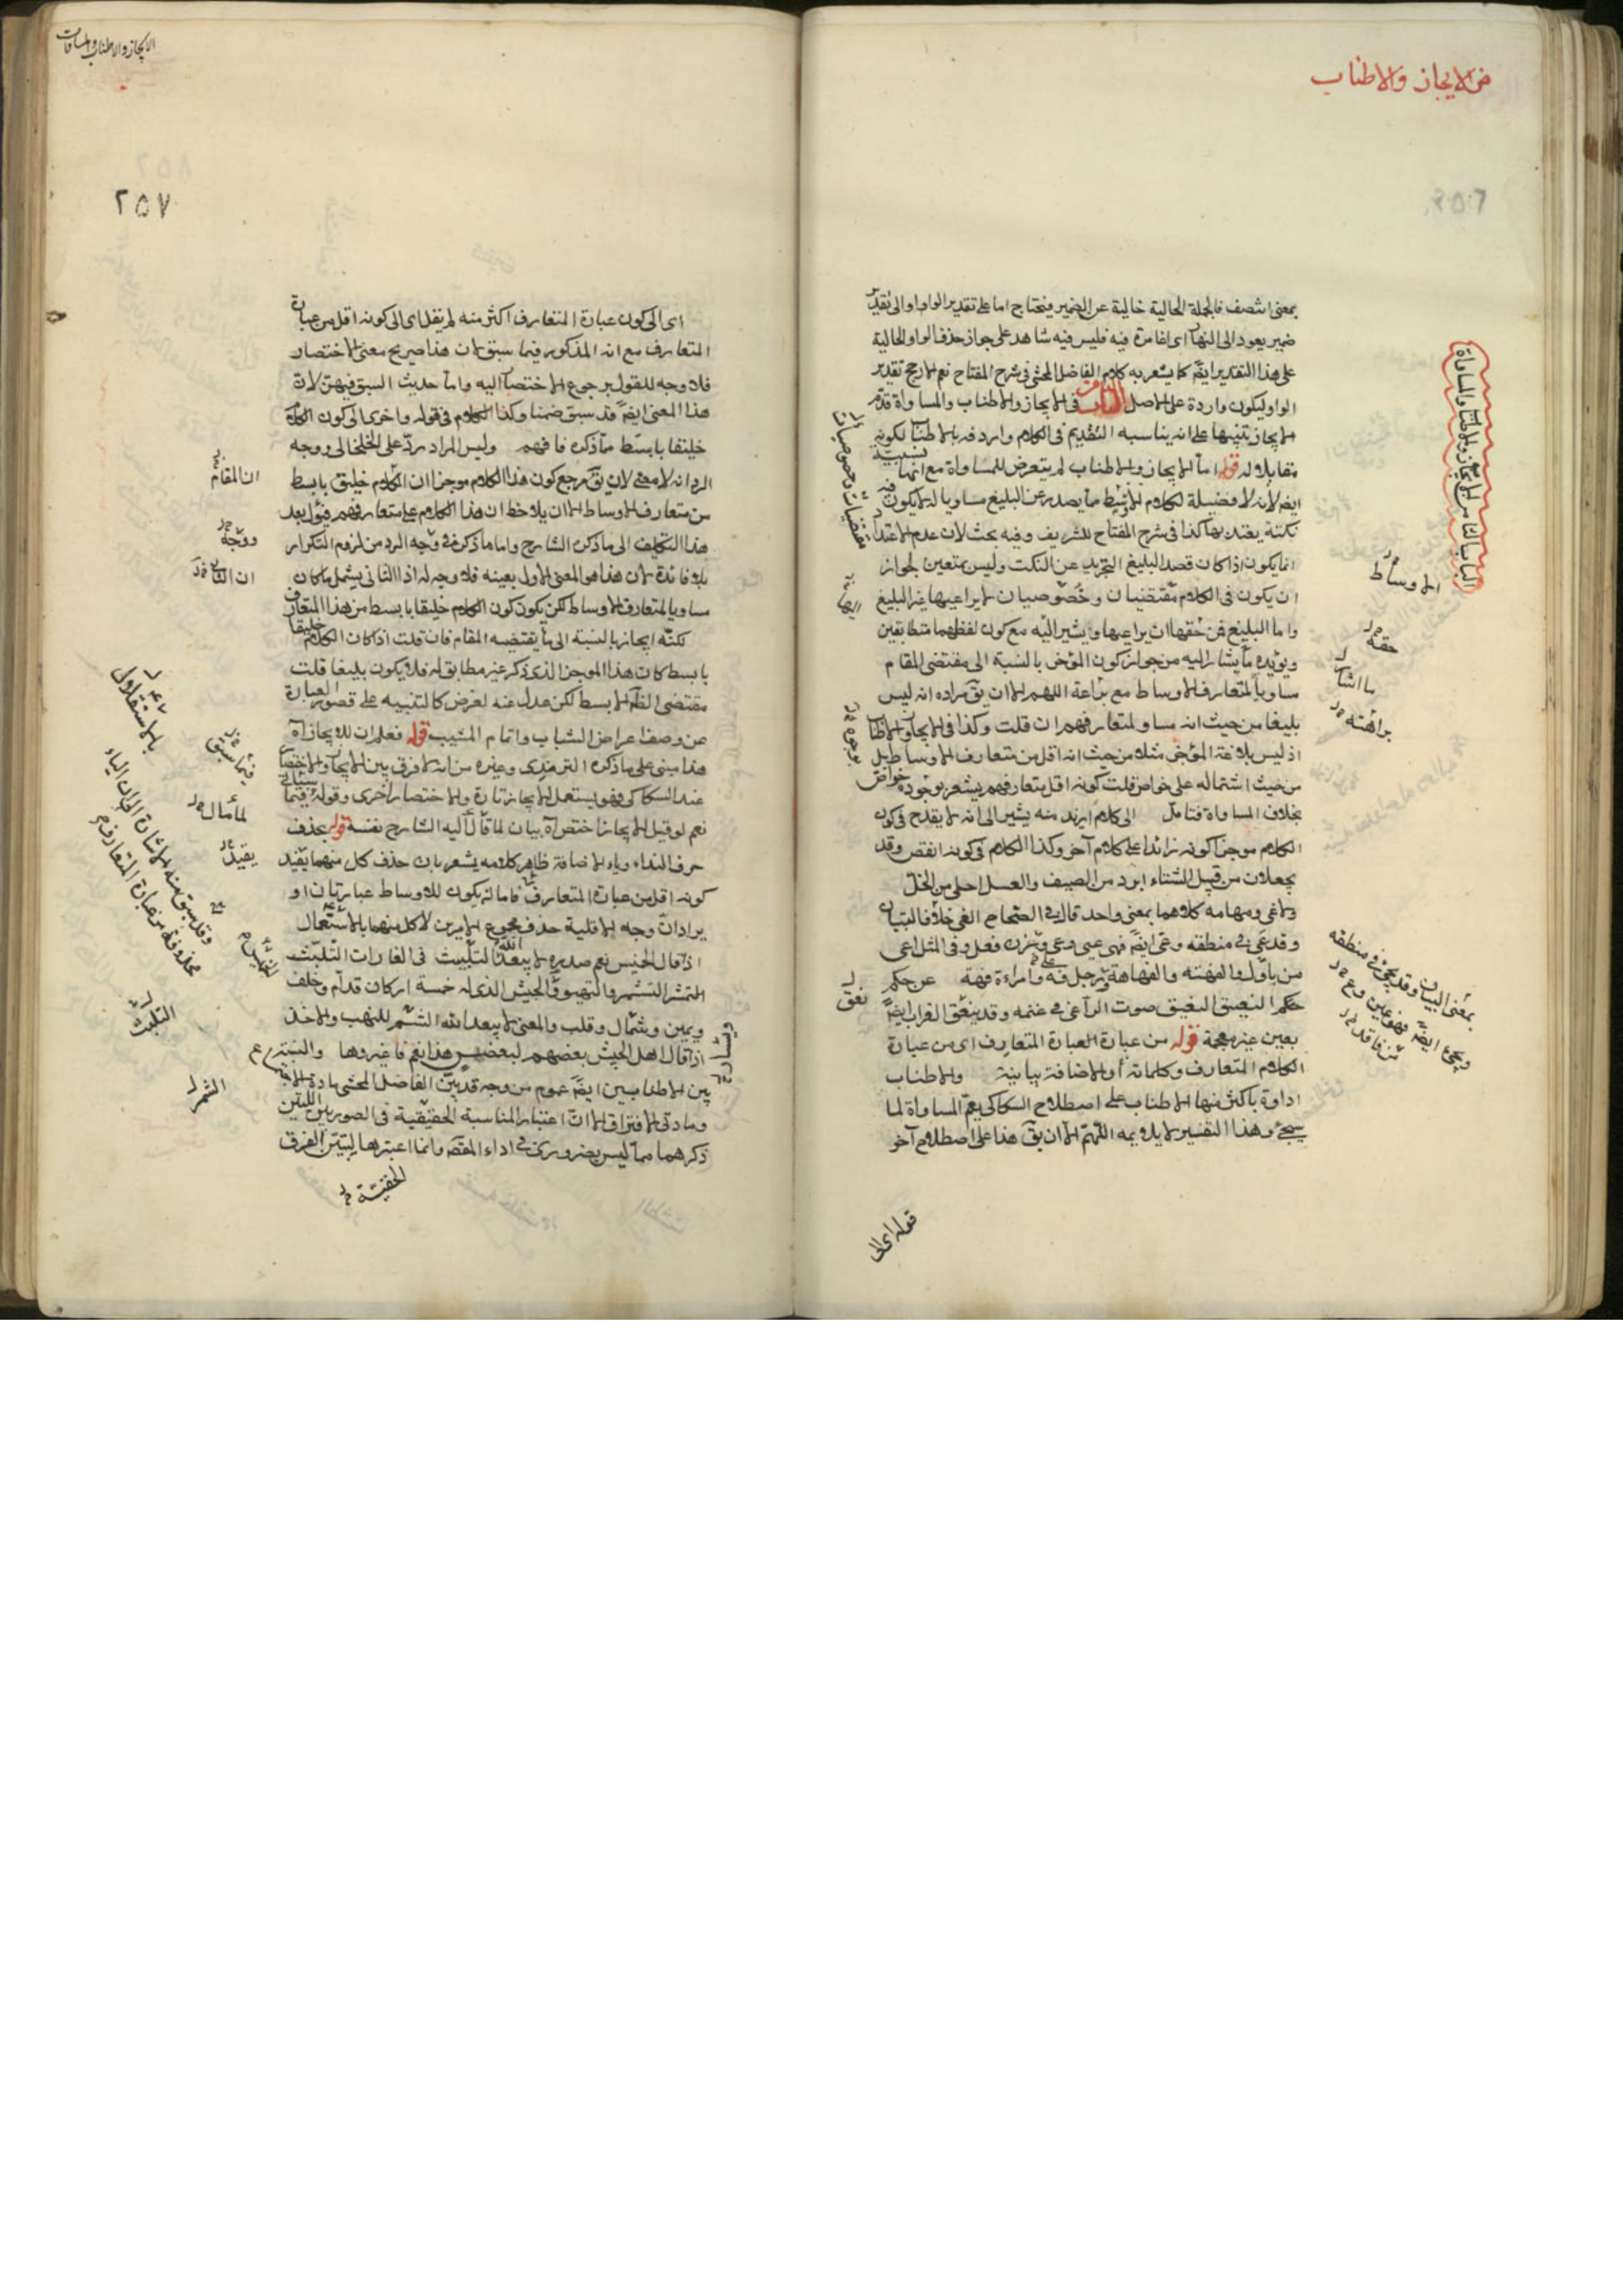 في الايجاز والاطناب
بمعنى انتصف فالجملة الحالية خالية عن الضمير فيحتاج اما على تقدير الواو او الى تقدير
ضمير يعود الى النهار اى غامرة فيه فليس فيه شاهد على جواز حذف الواو الحالية
على هذا التقدير ايضً كما يشعر به كلام الفاضل المحشى فى شرح المفتاح نعم الارجح تقدير
الواو ليكون واردة على الاصل الباب الثامن فى الايجاز والاطناب والمساواة قدّم
الايجاز تنبيها على انه يناسبه التقديم فى الكلام واردفه بالاطناب لكونه
مقابلا له قوله اما الايجاز والاطناب لم يتعرض للمساواة مع انها نسبية
ايضً لانه لا فضيلة لكلام الاوسط ما يصدر عن البليغ مساويا له لا يكون فيه
نكتة يعتد بها كذا فى شرح المفتاح للشريف وفيه بحث لان عدم الاعتداد
انما يكون اذا كان قصد البليغ التجريد عن النكت وليس بمتعين لجواز
ان يكون فى الكلام مقتضيات وخصوصيات لا يراعيها غير البليغ
واما البليغ فمن حقها ان يراعيها ويشير اليه مع كون لفظهما متطابقين
ويؤيده ما يشار اليه من جواز كون الموجز بالنسبة الى مقتضى المقام
مساويا لمتعارف الاوساط مع براعة اللهم الا ان يقَ مراده انه ليس
بليغا من حيث انه مساو لمتعارفهم ان قلت وكذا فى الايجاز والاطناب
اذ ليس بلاغة الموجز مثلا من حيث انه اقل من متعارف الاوساط بل
من حيث اشتماله على خواص قلت كونه اقل متعارفهم يشعر بوجود خواص
بخلاف المساواة فتامل الى كلام ازيد منه يشير الى انه لا يقدح فى كون
الكلام موجزا كونه زائدا على كلام آخر وكذا الكلام فى كونه انقص وقد
يجعلان من قبيل الشتاء ابرد من الصيف والعسل احلى من الخلّ
وقد عَى فى منطقه وعى ايضً فهى عيى وعى وتزن فعل وفى المثل اعى
من باقل والفهته والفهاهة ورجل فه وامراءة فهة عن حكم
حكم النعيق النعيق صوت الراعى فى غنمه وقد ينعق الغراب ايضً
بعين غير معجمة قوله من عبارة العبارة المتعارف اى من عبارة
الكلام المتعارف وكلماته أو الاضافة بيانية والاطناب
اداؤه باكثر منها الاطناب على اصطلاح السكاكى يعم المساواة لما
سيجئ وهذا التفسير لا يلايمه اللهمّ الا ان يقَ هذا على اصطلاح آخر
قوله اى الى
الباب الثامن الايجاز والاطناب والمساواة
الاوساط
حقه
ما اشار
براعته
نعق
الايجاز والاطناب والمساوات
٢٥٧
اى الى كون عبارة المتعارف اكثر منه لم يقل اى الى كونه اقل من عبارة
المتعارف مع انه المذكور فيما سبق لان هذا صريح معنى الاختصار
فلا وجه للقول برجوع الاختصار اليه واما حديث السبق فهين لان
هذا المعنى ايضً قد سبق ضمنا وكذا الكلام فى قوله واخرى الى كون الكلام
خليقا بابسط مما ذكره فافهم وليس المراد ردّ على الخلخالى ووجه
الرد انه لا معنى لان يقَ مرجع كون هذا الكلام موجزا ان الكلام خليق بابسط
من متعارف الاوساط الا ان يلاحظ ان هذا الكلام على متعارفهم فيؤل بعد
هذا التكليف الى ما ذكره الشارح واما ما ذكره فى وجه الرد من لزوم التكرار
بلا فائدة لان هذا هو المعنى الاول بعينه فلا وجه له اذ الثانى يشمل ما كان
مساويا لمتعارف الاوساط لكن يكون كون الكلام خليقا بابسط من هذا المتعارف
لكنّه ايجاز بالنسبة الى ما يقتضيه المقام فان قلت اذا كان الكلام خليقا
بابسط كان هذا الموجز الذى ذكر غير مطابق له فلا يكون بليغا قلت
مقتضى الظاهر الابسط لكن عدل عنه لغرض كالتنبيه على قصور العبارة
عن وصف اعراض الشباب واتمام المشيب قوله فعلم ان للايجاز آه
هذا مبنى على ما ذكره الترمذى وغيره من انه لا فرق بين الايجاز والاختصار
عند السكاكى فهو يستعمل الايجاز تارة والاختصار اخرى وقوله فيما سيأتى
نعم لو قيل الايجاز اختصر آه بيان لما قال اليه الشارح نفسه قوله بحذف
حرف النداء وياء الاضافة ظاهر كلامه يشعر بان حذف كل منهما يفيد
كونه اقل من عبارة المتعارف فاما ان يكون للاوساط عبارتان او
يراد ان وجه الاقلية حذف مجموع الامرين لا كل منهما بالاستعمال
اذا قال الخنيس نعم صدره لا يبعد الله التلبيث فى الغارات التلبّث
التشر التشمر والتهيؤ والجيش الذى له خمسة اركان قدام وخلف
ويمين وشمال وقلب والمعنى لا يبعد الله التشمر للنهب والاخذ
اذا قال اهل الجيش بعضهم لبعض هذا نعم فاغزوها والستر
بين الاطنابين ايضً عموم من وجه قد بيّن الفاضل المحشى مادة الاجتماع
ومادتى الافتراق الا ان اعتبار المناسبة الحقيقية فى الصورتين اللتين
ذكرهما مما ليس بضرورى فى اداء المقصَ وانما اعتبرها ليتبيّن الفرق
الخفيّة
ان المقام
ووجه
فيما سبق
لما مال
يفيد
بالاستقلال
محذوفة من عبارة المتعارف
التلبث
الشمر